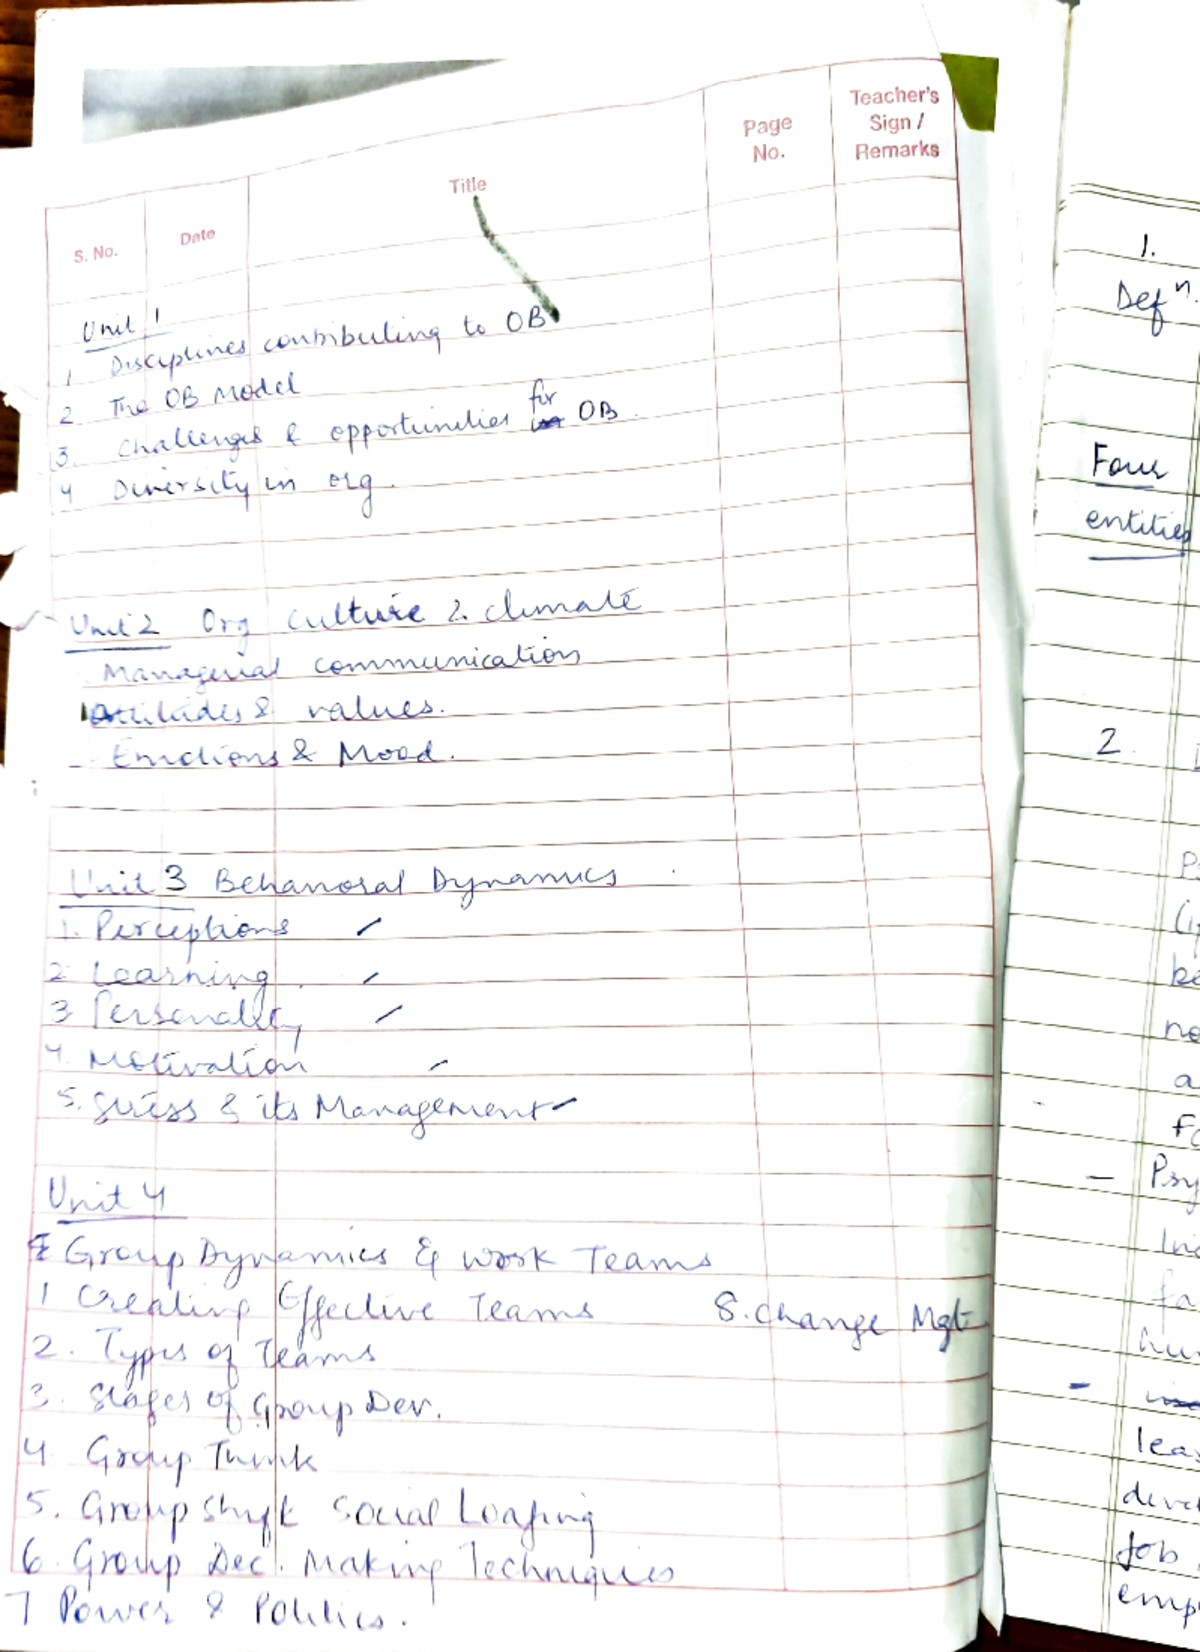 S. No.
Date
Title
Page No.
Teacher's Sign / Remarks
Unit 1
1 Disciplines contributing to OB
2 The OB Model
3. Challenges & opportunities for OB.
4 Diversity in org.
Unit 2 Org culture & climate
Managerial communication
Attitudes & values.
- Emotions & Mood.
Unit 3 Behavioral Dynamics
1. Perceptions
2. Learning.
3 Personality
4. Motivation
5. Stress & its Management
Unit 4
Group Dynamics & Work Teams
1 Creating Effective Teams
8. Change Mgt
2. Types of Teams
3. Stages of Group Dev.
4 Group Think
5. Group Shift Social Loafing
6. Group Dec. Making Techniques
7 Power & Politics.
1.
Defn.
Four
entities
2.
- Psy
-
job
emp